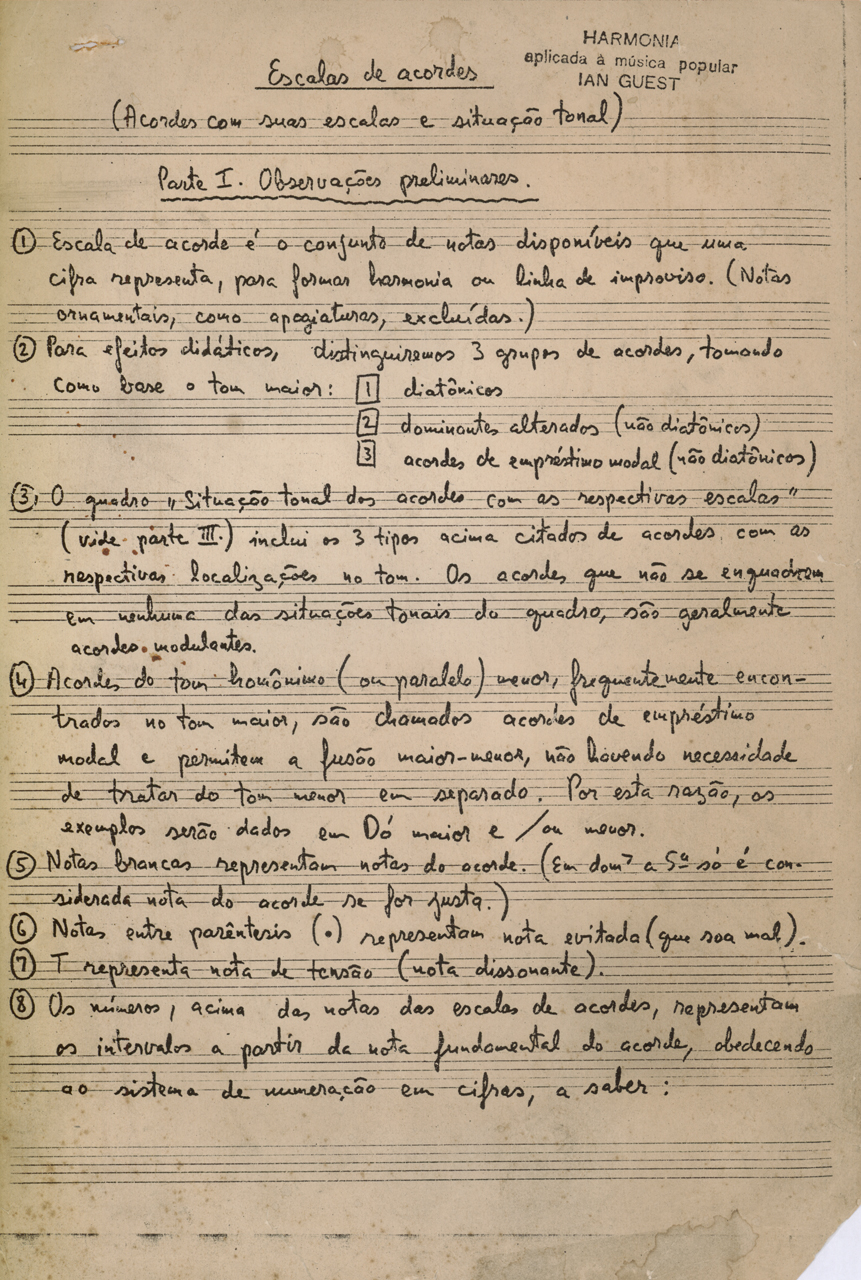 HARMONIA
aplicada à música popular
IAN GUEST
Escalas de acordes
(Acordes com suas escalas e situação tonal)
Parte I. Observações preliminares.
① Escala de acorde é o conjunto de notas disponíveis que uma
cifra representa, para formar harmonia ou linha de improviso. (Notas
ornamentais, como apogiaturas, excluídas.)
② Para efeitos didáticos, distinguiremos 3 grupos de acordes, tomando
como base o tom maior: 1 diatônicos
2 dominantes alterados (não diatônicos)
3 acordes de empréstimo modal (não diatônicos)
③ O quadro „Situação tonal dos acordes com as respectivas escalas"
(vide parte III.) inclui os 3 tipos acima citados de acordes com as
respectivas localizações no tom. Os acordes que não se enquadrem
em nenhuma das situações tonais do quadro, são geralmente
acordes modulantes.
④ Acordes do tom homônimo (ou paralelo) menor, frequentemente encon-
trados no tom maior, são chamados acordes de empréstimo
modal e permitem a fusão maior-menor, não havendo necessidade
de tratar do tom menor em separado. Por esta razão, os
exemplos serão dados em Dó maior e /ou menor.
⑤ Notas brancas representam notas do acorde. (Em dom⁷ a 5ª só é con-
siderada nota do acorde se for justa.)
⑥ Notas entre parêntesis (•) representam nota evitada (que soa mal).
⑦ T representa nota de tensão (nota dissonante).
⑧ Os números, acima das notas das escalas de acordes, representam
os intervalos a partir da nota fundamental do acorde, obedecendo
ao sistema de numeração em cifras, a saber: